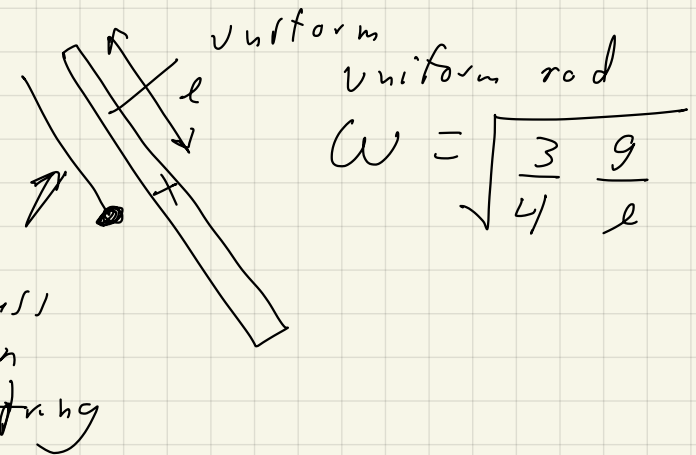 unrform
uniform rod
l
ω = √(3/4 g/l)